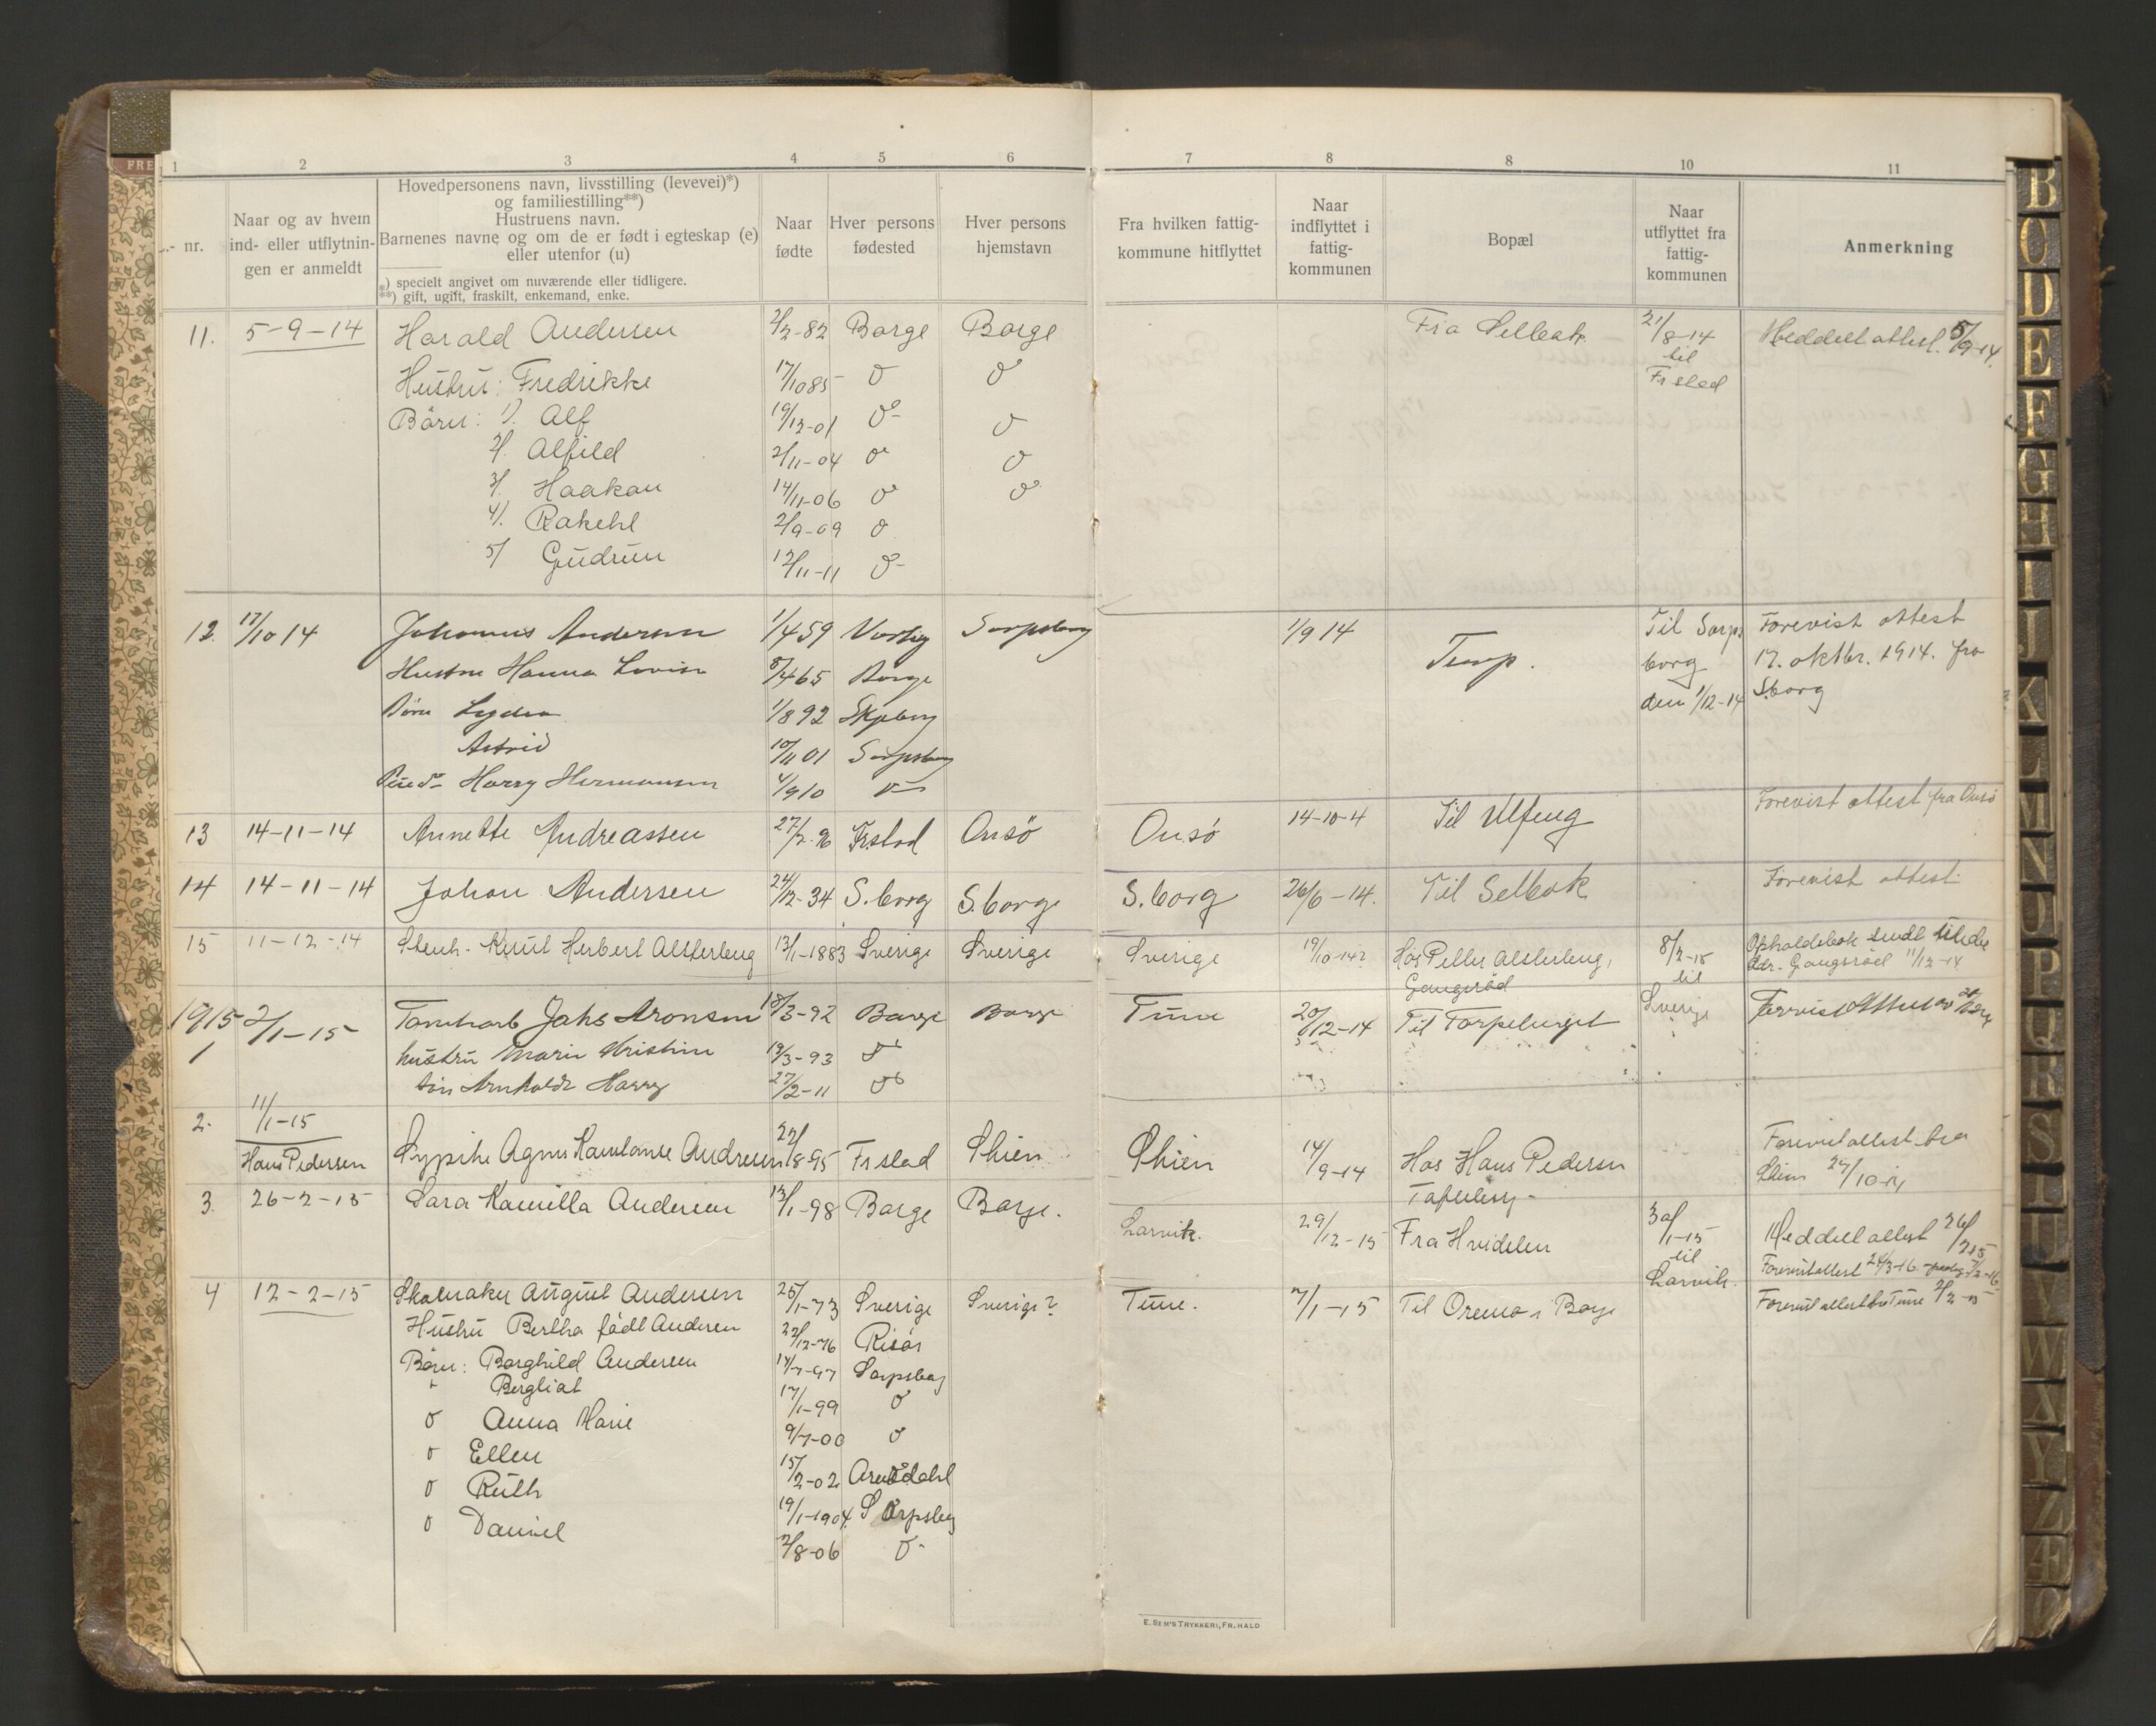 1 2 3 4 5 6 7 8 8 10 11
nr.
Naar og av hvem
ind- eller utflytnin-
gen er anmeldt
Hovedpersonens navn, livsstilling (levevei)*)
og familiestilling**)
Hustruens navn.
Barnenes navne og om de er født i egteskap (e)
eller utenfor (u)
*) specielt angivet om nuværende eller tidligere.
**) gift, ugift, fraskilt, enkemand, enke.
Naar
fødte
Hver persons
fødested
Hver persons
hjemstavn
Fra hvilken fattig-
kommune hitflyttet
Naar
indflyttet i
fattig-
kommunen
Bopæl
Naar
utflyttet fra
fattig-
kommunen
Anmerkning
11. 5-9-14 Harald Andersen 2/2-82 Borge Borge Fra Selbak 21/8-14 Meddelt attest. 5/9-14.
til
Fr stad
Hustru: Fredrikke 17/10 85 do do
Börn: 1). Alf 19/12-01 do do
2/. Alfild 2/11-04 do do
3/. Haakon 14/11-06 do do
4/. Rakehl 2/9-09 do
5/ Gudrun 12/11-11 do
12. 17/10 14 Johannes Andersen 1/4 59 Varteig Sarpsborg 1/9 14 Torp. Til Sarps Forevist attest
borg 17. oktbr. 1914. fra
den 1/12-14 S.borg
Hustru Hanna Lovise 8/4 65 Borge
Børn Lydia 1/8 92 Skjeberg
Astrid 10/11 01 Sarpsborg
Harry Hermansen 4/9 10 do
13 14-11-14 Annette Andreassen 27/2-96 Fr.stad Onsö Onsö 14-10-4 Til Ulfeng Forevist attest fra Onsö
14 14-11-14 Johan Andersen 24/12-34 S.borg S.borg S.borg 26/6-14. Til Selbak Forevist attest
15 11-12-14 Stenh. Knut Herbert Alsterberg 13/1-1883 Sverige Sverige Sverige 19/10-14 Hos Petter Alsterberg, 8/2-15 Opholdsbok sendt
Gangsröd til Adr. Gangsröd 11/12-14
Sverige
1915 2/1-15 Tomtearb Johs Aronsen 18/3-92 Borge Borge Tune 20/12-14 Til Torpeberget
1 hustru Marie Kristine 19/3-93 do
sön Arnholdt Harry 27/2-11 do
2. 11/1-15
Hans Pedersen Sypike Agnes Konstanse Andresen 22/8-95 Fr stad Skien Skien 14/9-14 Hos Hans Pedersen Forevist attest fra
Skien 24/10-14
3. 26-2-15 Sara Kamilla Andersen 13/1-98 Borge Borge. Larvik. 29/12-15 Fra Hvidelen 30/1-15 Meddelt attest 26/2 15
til
Larvik. Forevist attest 24/3-16
4 12-2-15 Skomaker August Andersen 25/1-73 Sverige Sverige? Tune. 7/1-15 Til Oremo i Borge Forevist attest fra Tune 2/2-15
Hustru Bertha födt Andersen 22/12-76 Risör
Börn: Borghild Andersen 14/7-97 Sarpsborg
" Bergliot 17/1-99 do
do Anna Marie 9/7-00 do
do Ellen 15/2-02 Arendahl
do Ruth 19/1-1904. Sarpsborg
do Daniel 2/8-06 do
E. SEM'S TRYKKERI, FR.HALD
FRE
B
C
D
E
F
G
H
I
J
K
L
M
N
O
P
Q
R
S
T
U
V
W
X
Y
Z
Æ
Ø